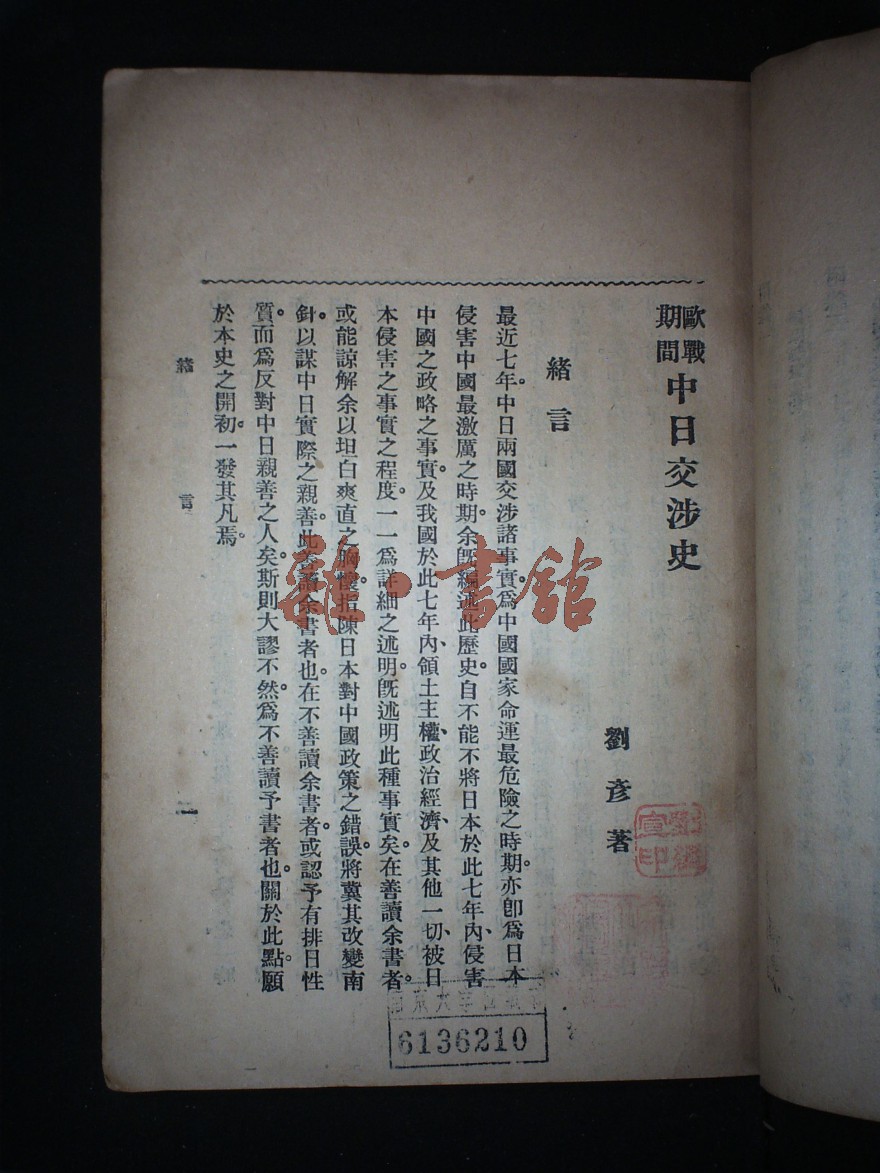 歐戰期間中日交涉史
劉彥著
緒言
最近七年。中日兩國交涉諸事實。爲中國國家命運最危險之時期。亦卽爲日本
侵害中國最激厲之時期。余旣編述此歷史。自不能不將日本於此七年內、侵害
中國之政略之事實。及我國於此七年內、領土主權、政治經濟、及其他一切、被日
本侵害之事實之程度。一一爲詳細之述明。旣述明此種事實矣。在善讀余書者。
或能諒解余以坦白爽直之胸懷。指陳日本對中國政策之錯誤。將冀其改變南
針。以謀中日實際之親善。此善讀余書者也。在不善讀余書者。或認予有排日性
質。而爲反對中日親善之人矣。斯則大謬不然。爲不善讀予書者也。關於此點。願
於本史之開初。一發其凡焉。
緒言
一
雜·書館
6136210